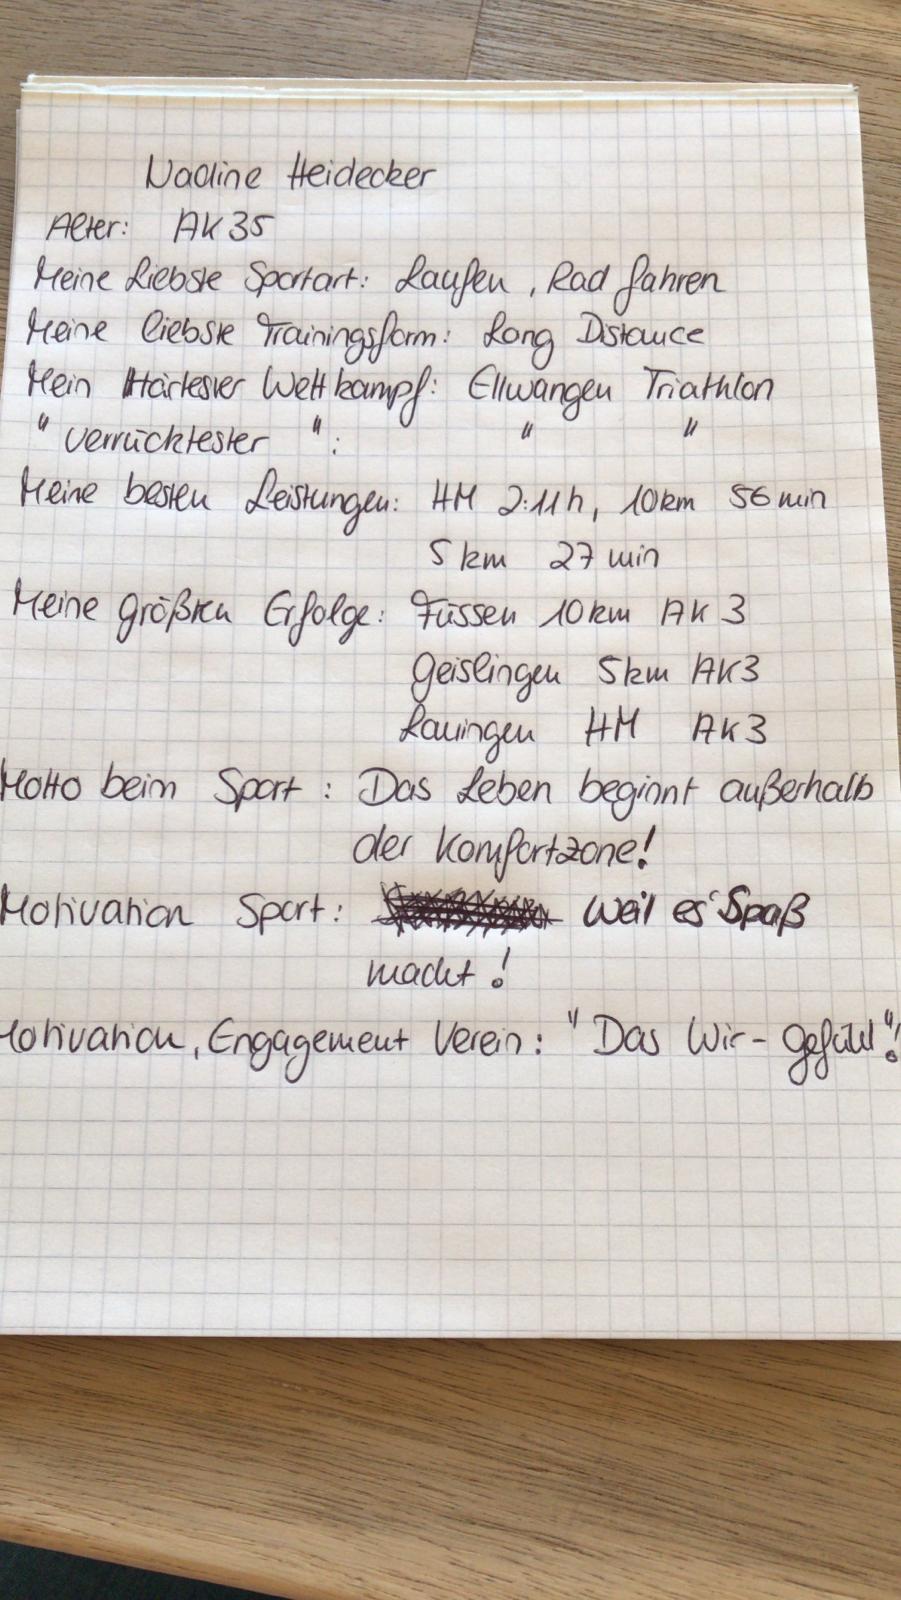 Nadine Heidecker
Alter: AK 35
Meine Liebste Sportart: Laufen, Rad fahren
Meine liebste Trainingsform: Long Distance
Mein Härtester Wettkampf: Ellwangen Triathlon
" verrücktester ": " "
Meine besten Leistungen: HM 2:11h, 10km 56min
5 km 27 min
Meine größten Erfolge: Füssen 10km AK 3
Geislingen 5km AK3
Lauingen HM AK3
Motto beim Sport: Das Leben beginnt außerhalb
der Komfortzone!
Motivation Sport: Weil es Spaß
macht!
Motivation, Engagement Verein: "Das Wir-Gefühl"!